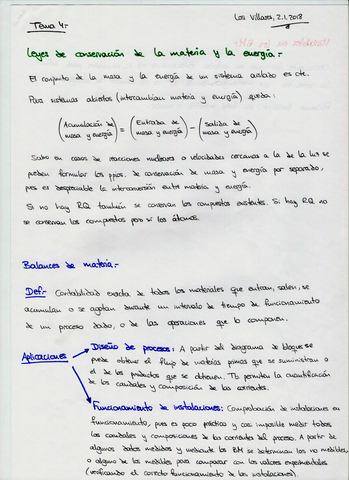 Los Villares, 2.1.2018
Tema 4:-
Leyes de conservación de la materia y la energía:-
El conjunto de la masa y la energía de un sistema aislado es cte.
Para sistemas abiertos (intercambian materia y energía) queda:
(Acumulación de masa y energía) = (Entrada de masa y energía) - (Salida de masa y energía)
Salvo en casos de reacciones nucleares o velocidades cercanas a la de la luz se
pueden formular los ppios. de conservación de masa y energía por separado,
pues es despreciable la interconversión entre materia y energía.
Si no hay RQ también se conservan los compuestos existentes. Si hay RQ no
se conservan los compuestos pero sí los átomos.
Balances de materia:-
Def:- Contabilidad exacta de todos los materiales que entran, salen, se
acumulan o se agotan durante un intervalo de tiempo de funcionamiento
de un proceso dado, o de las operaciones que lo componen.
Aplicaciones
Diseño de procesos: A partir del diagrama de bloques se
puede obtener el flujo de materias primas que se suministran o
el de los productos que se obtienen. Tb permiten la cuantificación
de los caudales y composición de las corrientes.
Funcionamiento de instalaciones: Comprobación de instalaciones en
funcionamiento, pues es poco práctico y casi imposible medir todos
los caudales y composiciones de las corrientes del proceso. A partir de
algunos datos medidos y mediante los BM se determinan los no medibles,
o alguno de los medibles para comparar con los valores experimentales
(verificando el correcto funcionamiento de las instalaciones).